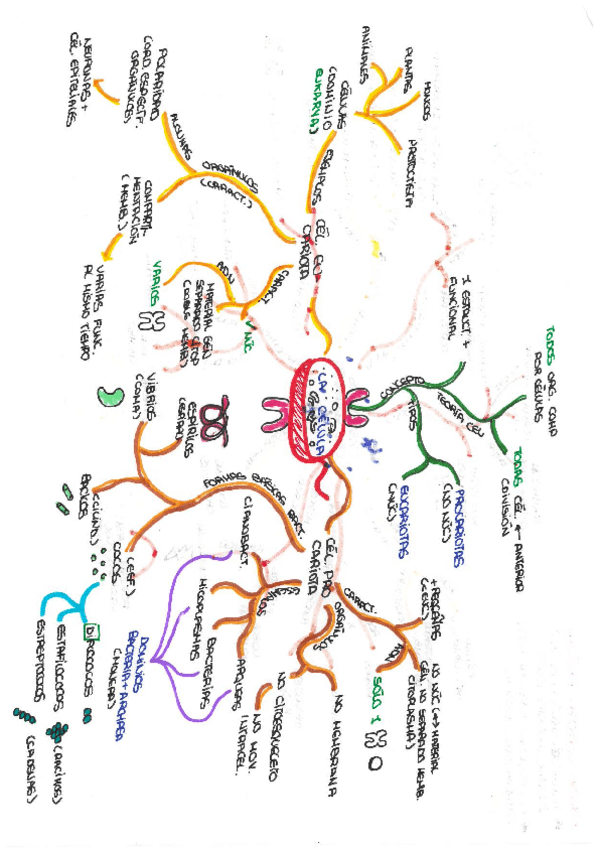 LA CÉLULA
CONCEPTO
1 ESTRUCT. +
FUNCIONAL
TEORÍA CEL
TODOS ORG. COMP
POR CÉLULAS
TODAS CÉL. ← ANTERIOR
(DIVISIÓN)
TIPOS
PROCARIOTAS
(NO NÚC)
EUCARIOTAS
(NÚC)
CÉL. PRO
CARIOTA
CARACT.
+ PEQUEÑAS
ADN
NO NÚC (↔ MATERIAL
GEN. NO SEPARADO MEMB.
CITOPLASMA)
SOLO 1
NO MEMBRANA
NO CITOESQUELETO
NO MOV.
INTRACEL.
ARQUEAS
BACTERIAS
MICOPLASMAS
CIANOBACT.
DOMINIOS
BACTERIA + ARCHAEA
(ARQUEAS)
FORMAS BÁSICAS BACT.
ESPIRILOS
(ESPIRAL)
VIBRIOS
(COMA)
BACILOS
(CILIND.)
COCOS
(ESF.)
DIPLOCOCOS
ESTAFILOCOCOS
(RACIMOS)
ESTREPTOCOCOS
(CADENAS)
CÉL. EU
CARIOTA
EJEMPLOS
CÉLULAS
(DOMINIO
EUKARYA)
ANIMALES
PLANTAS
HONGOS
PROTOCTISTA
ORGÁNULOS
(CARACT.)
ALGUNAS
POLARIDAD
(ORD. ESPECÍF.
ORGÁNULOS)
NEURONAS +
CÉL. EPITELIALES
COMPARTI-
MENTACIÓN
(MEMB.)
VARIAS FUNC.
AL MISMO TIEMPO
CARACT.
NÚC
MATERIAL GEN
SEPARADO CITOP
(DOBLE MEMB)
ADN
VARIOS